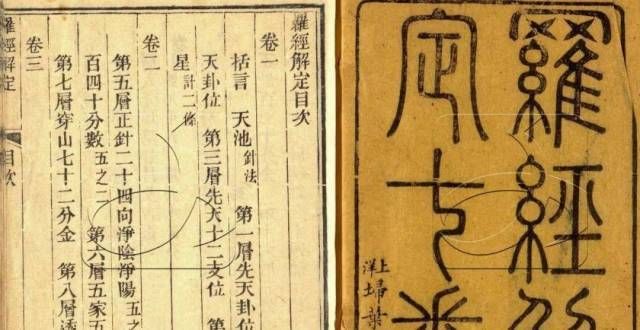 羅經解
定七卷
上洋埽葉
羅經解定目次
卷一
括言 天池針法 第一層先天卦位
天卦位 第三層先天十二支位
星計二條
卷二
第五層正針二十四向淨陰淨陽五
百四十分數五之二 第六層五家五
第七層穿山七十二分金 第八層透
卷三
羅經解定 目次